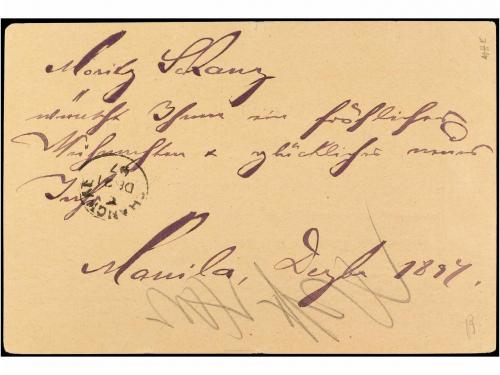 Moritz Schanz
wünscht Ihnen ein fröhliches
Weihnachten & glückliches neues
Jahr
Manila, Dezbr 1897.